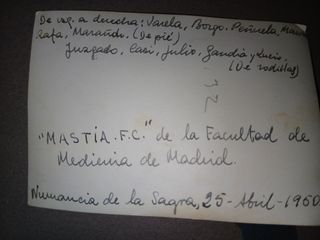 De izq. a derecha: Varela, Borgo, Peñuela,
Rafa, Marañón. (De pié)
Juzgado, Casi, Julio, Gandía y Lucio.
(De rodillas)
12
"MASTÍA. F.C." de la Facultad de
Medicina de Madrid.
Numancia de la Sagra, 25-Abril-1950